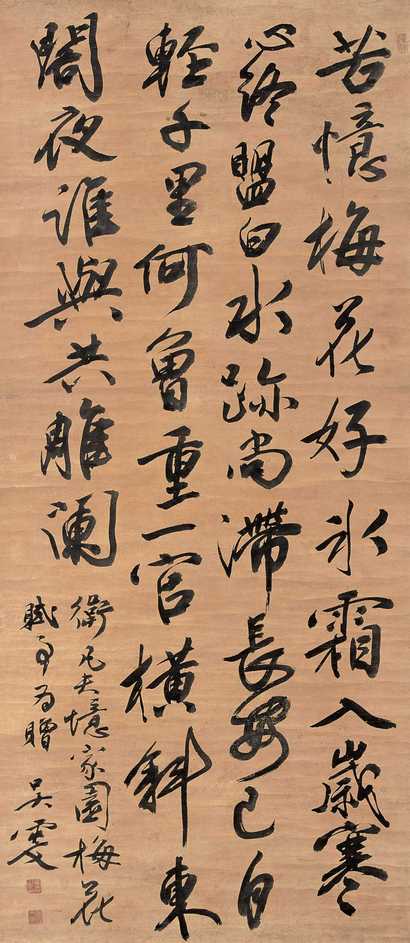 苦憶梅花好氷霜入歲寒
心終盟白水跡尚滯長安已自
輕千里何曾重一官橫斜東
閣夜誰與共雕闌
衛凡夫憶家園梅花
賦為贈 吳雯